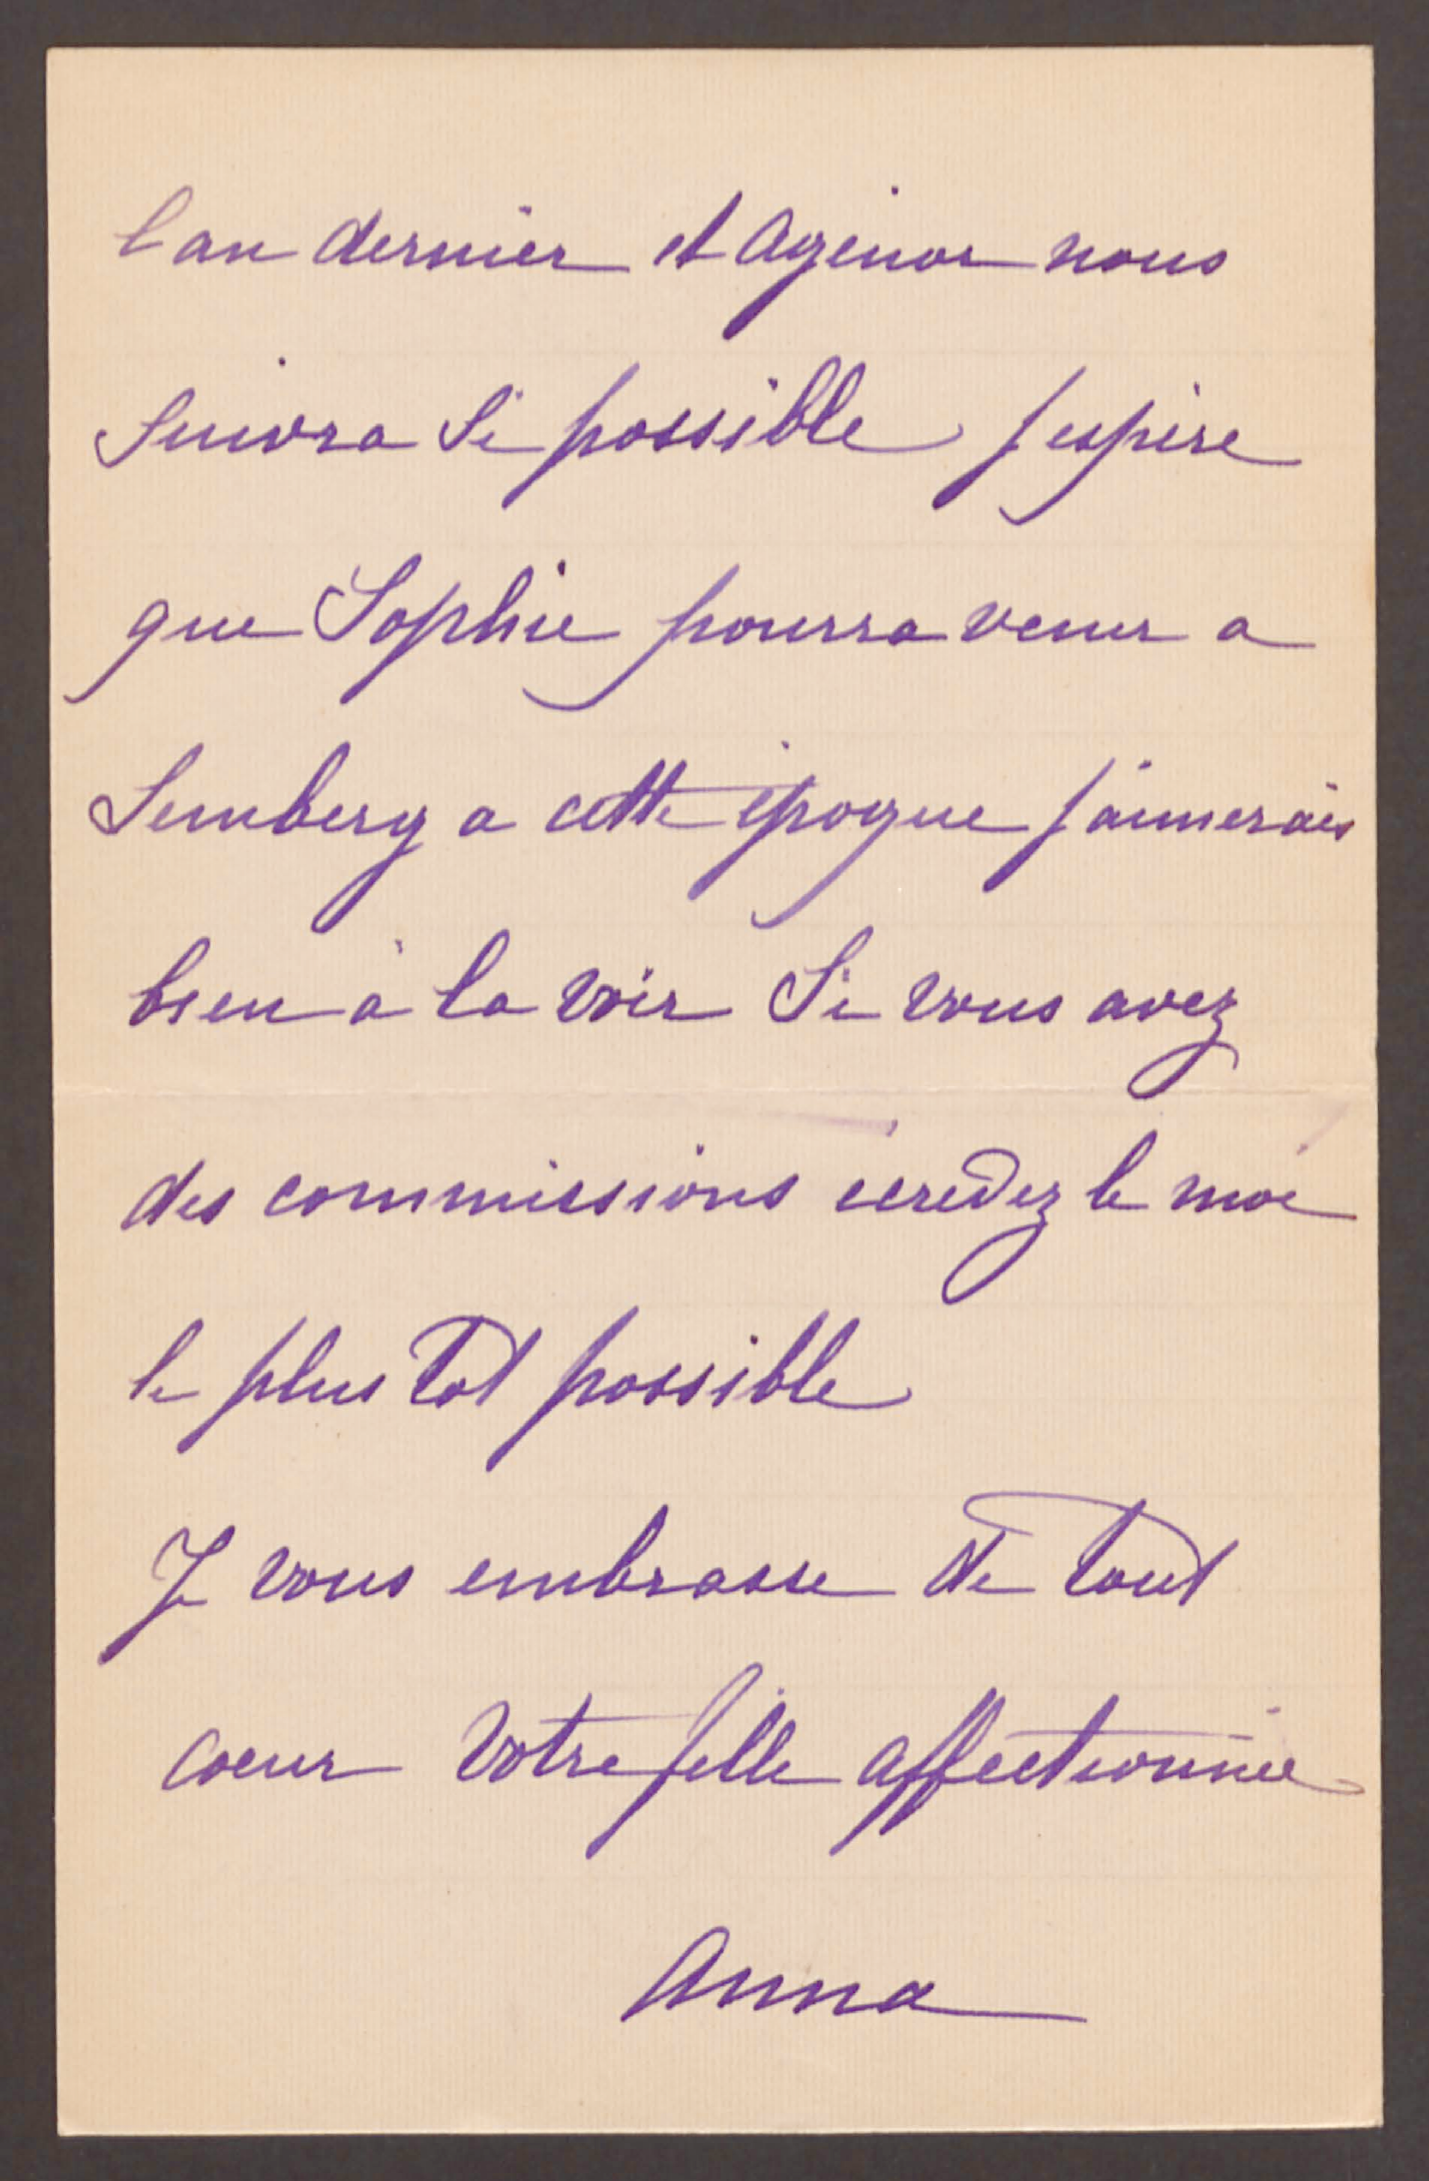 l'an dernier et Agénor nous
suivra si possible j'espère
que Sophie pourra venir a
Lemberg a cette époque j'aimerais
bien à la voir Si vous avez
des commissions écrivez le moi
le plus tot possible
Je vous embrasse de tout
coeur Votre fille affectionnée
Anna